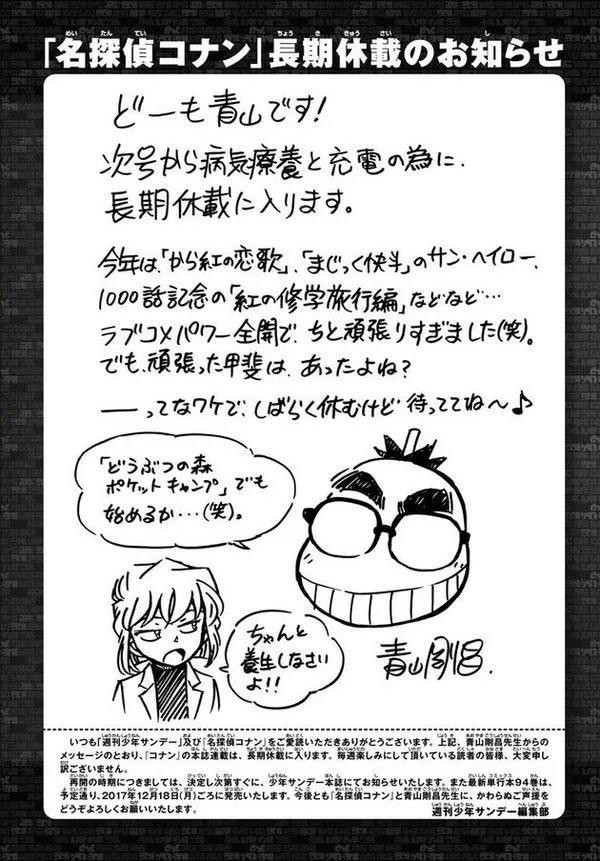 「名探偵コナン」長期休載のお知らせ
どーも青山です!
次号から病気療養と充電の為に、
長期休載に入ります。
今年は、「から紅の恋歌」、「まじっく快斗」のサン・ヘイロー、
1000話記念の「紅の修学旅行編」などなど…
ラブコメパワー全開で、ちと頑張りすぎました(笑)。
でも、頑張った甲斐は、あったよね?
――ってなワケで、しばらく休むけど 待っててね〜♪
「どうぶつの森
ポケットキャンプ」でも
始めるか…(笑)。
ちゃんと
養生しなさい
よ!!
青山剛昌.
いつも「週刊少年サンデー」及び「名探偵コナン」をご愛読いただきありがとうございます。上記、青山剛昌先生からの
メッセージのとおり、『コナン』の本誌連載は、長期休載に入ります。毎週楽しみにして頂いている読者の皆様、大変申し
訳ございません。
再開の時期につきましては、決定し次第すぐに、少年サンデー本誌にてお知らせいたします。また最新単行本94巻は、
予定通り、2017年12月18日(月)ごろに発売いたします。今後とも「名探偵コナン」と青山剛昌先生に、かわらぬご声援を
どうぞよろしくお願いいたします。
週刊少年サンデー編集部